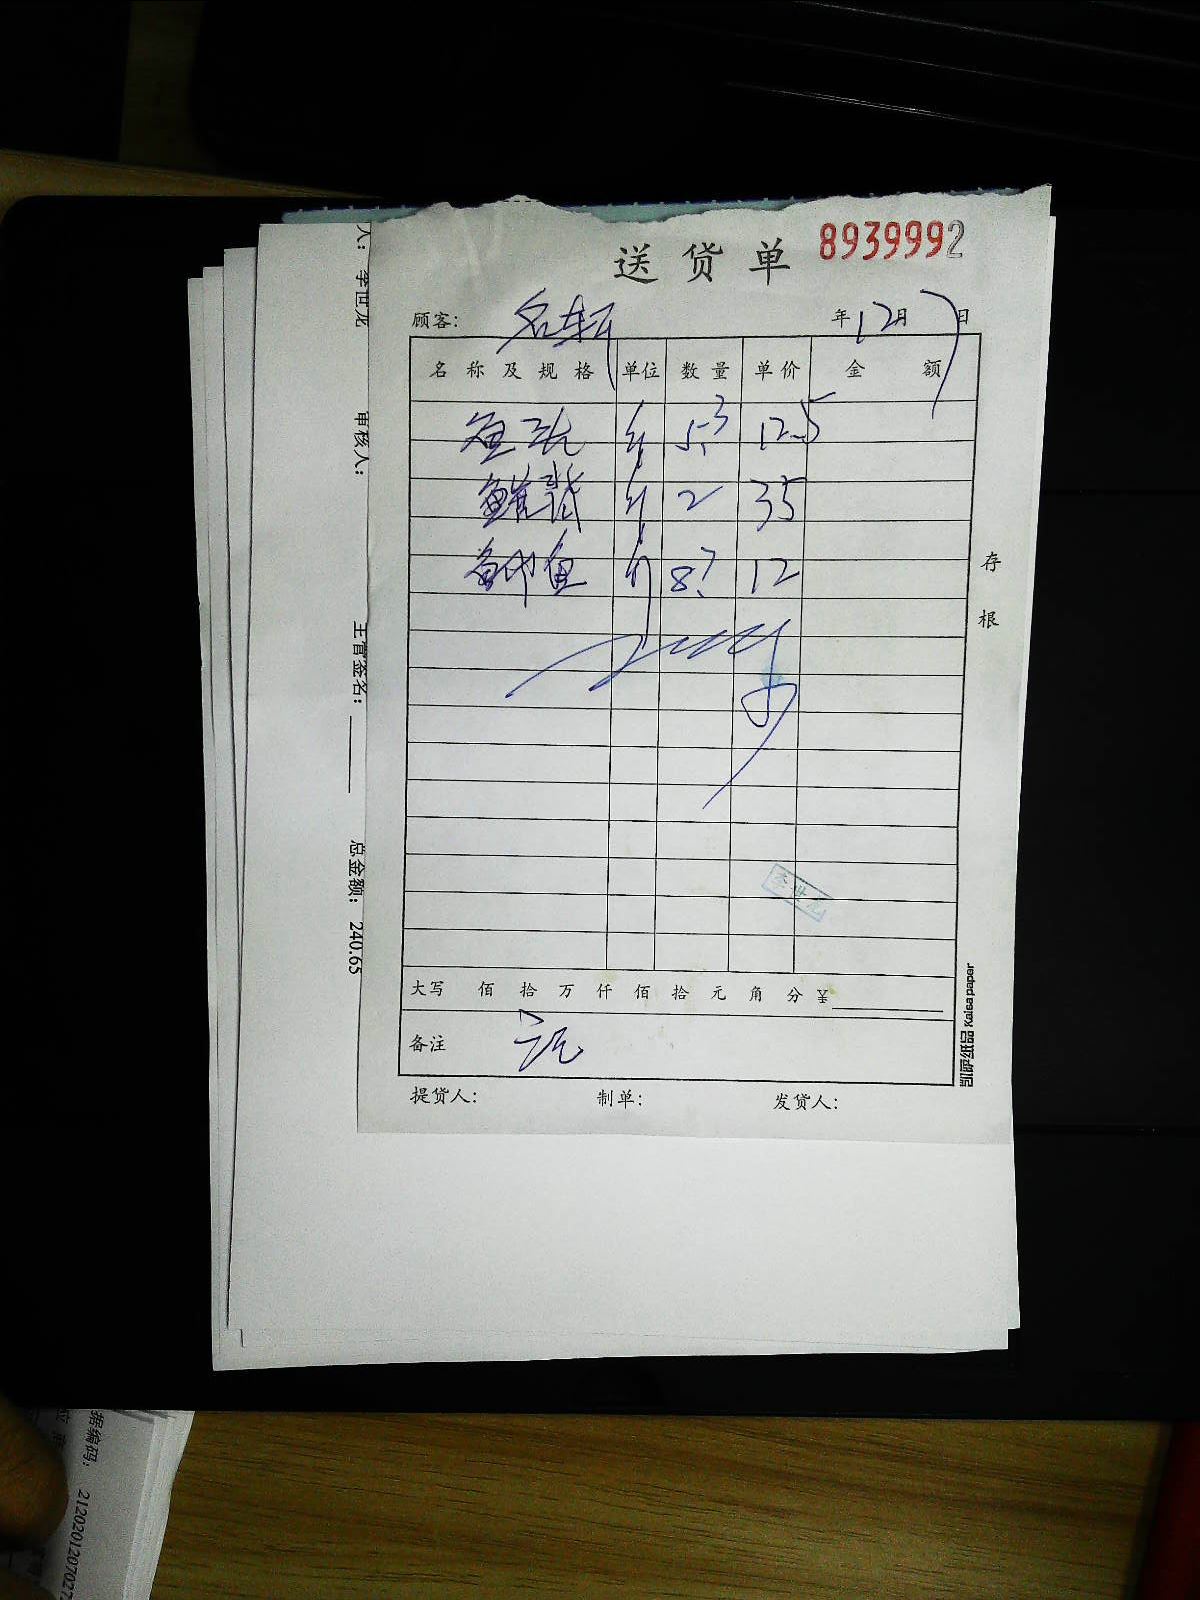 送货单 8939992
顾客: 名轩 年12月7日
名称及规格 单位 数量 单价 金额
斤 5.3 12.5
斤 2 35
鱼 斤 8.7 12
存根
李世龙
大写 佰 拾 万 仟 佰 拾 元 角 分 ¥
备注
提货人: 制单: 发货人:
凯萨纸品 Kaisa paper
人: 李世龙 审核人: 主管签名: 总金额: 240.65
据编码: 212020120702